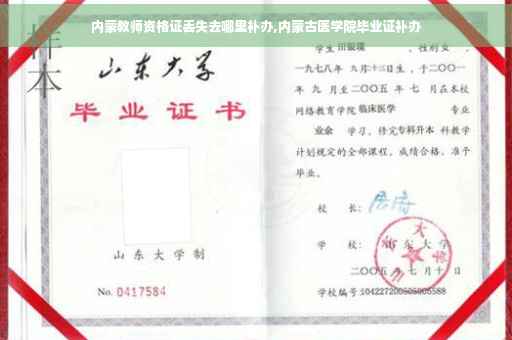 内蒙教师资格证丢失去哪里补办,内蒙古医学院毕业证补办
样本
山东大学
毕业证书
山东大学制
No. 0417584
学生 田银璞 ，性别 女 ，
一九七八年 九月十三日生，于二〇〇一
年 九 月至二〇〇五 年 七 月在本校
网络教育学院 临床医学 专业
业余 学习，修完专科升本 科教学
计划规定的全部课程，成绩合格，准予
毕业。
校 长：
学 校：山东大学
二〇〇五 年 七 月 十 日
学校编号:104227200505005588